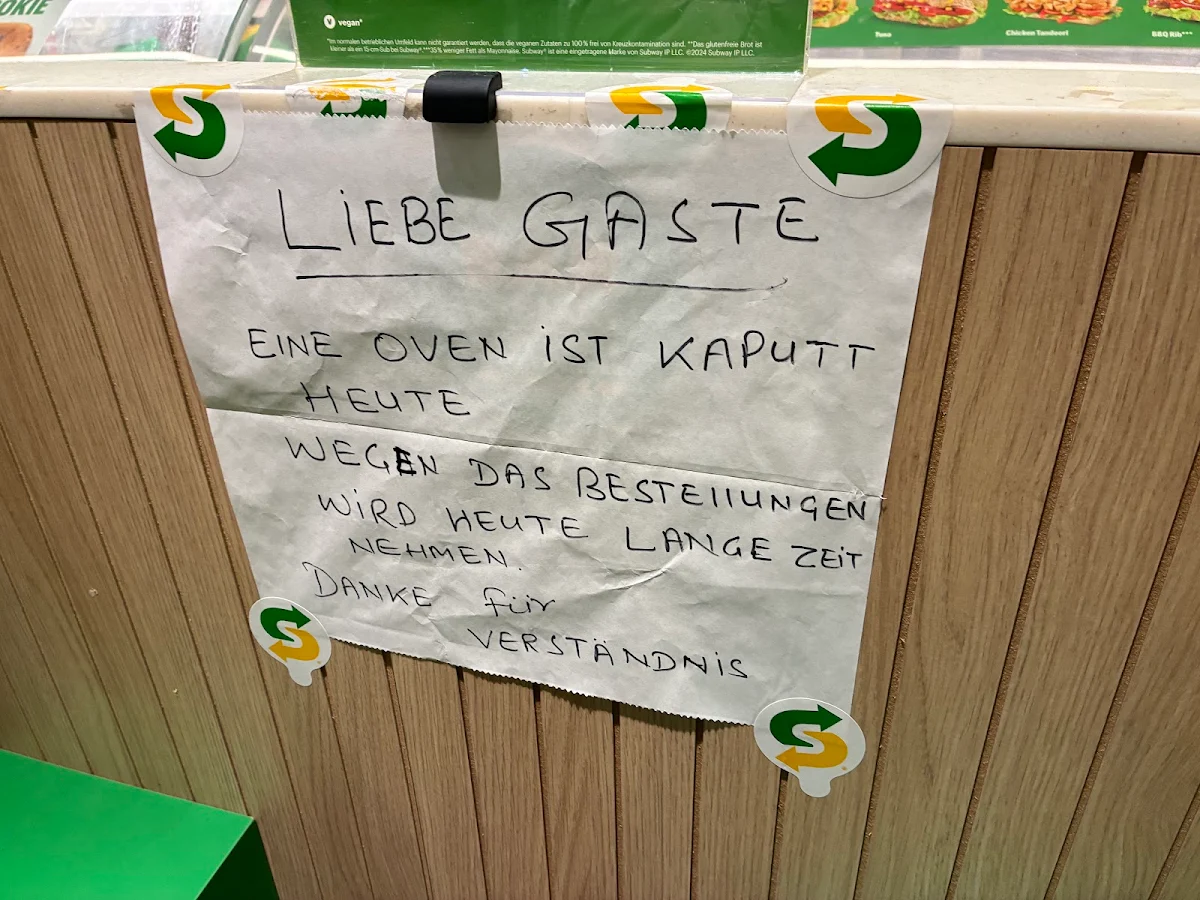 OKIE
V vegan*
*Im normalen betrieblichen Umfeld kann nicht garantiert werden, dass die veganen Zutaten zu 100% frei von Kreuzkontamination sind. **Das glutenfreie Brot ist
kleiner als ein 15-cm-Sub bei Subway®. ***35% weniger Fett als Mayonnaise. Subway® ist eine eingetragene Marke von Subway IP LLC. ©2024 Subway IP LLC.
Tuna
Chicken Tandoori
BBQ Rib***
LIEBE GASTE
EINE OVEN IST KAPUTT
HEUTE
WEGEN DAS BESTEllUNGEN
WIRD HEUTE LANGE ZEIT
NEHMEN.
DANKE für
VERSTÄNDNIS